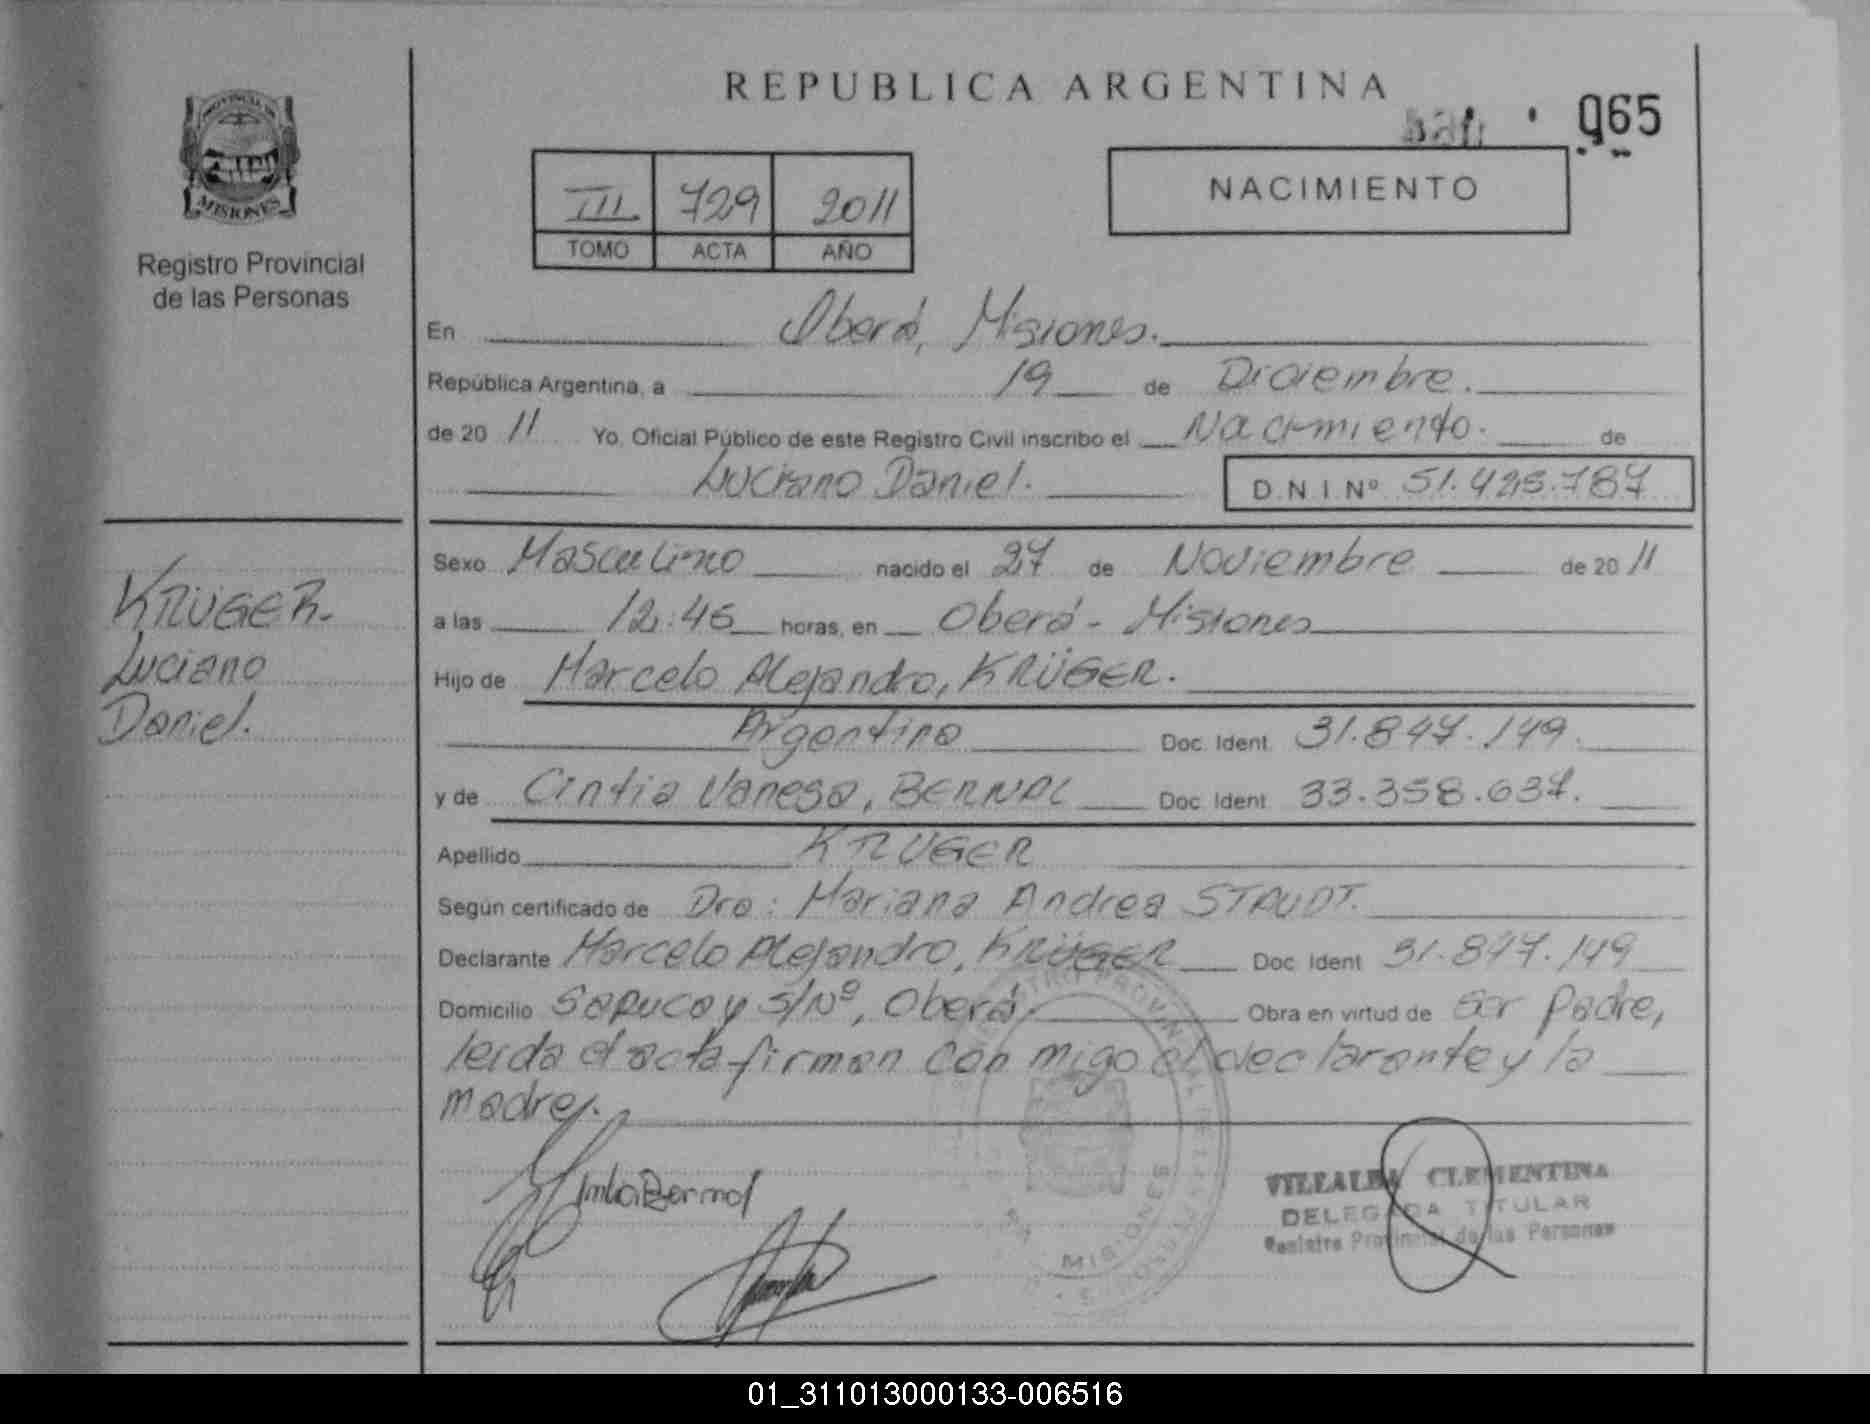 REPUBLICA ARGENTINA
065
PROVINCIA DE
MISIONES
Registro Provincial
de las Personas
III 729 2011
TOMO ACTA AÑO
NACIMIENTO
En Oberá, Misiones.
República Argentina, a 19 de Diciembre.
de 20 11 Yo, Oficial Público de este Registro Civil inscribo el Nacimiento. de
Luciano Daniel. D.N.I.Nº 51.425.787
KRÜGER.
Luciano
Daniel.
Sexo Masculino nacido el 27 de Noviembre de 20 11
a las 12.45 horas, en Oberá - Misiones
Hijo de Marcelo Alejandro, KRÜGER.
Argentino Doc. Ident. 31.847.149.
y de Cintia Vanesa, BERNAL Doc. Ident. 33.358.637.
Apellido KRUGER
Según certificado de Dra: Mariana Andrea STAUDT.
Declarante Marcelo Alejandro, KRÜGER Doc. Ident. 31.847.149
Domicilio Sapucay S/Nº, Oberá. Obra en virtud de Ser Padre,
leida el acta firman con migo el declarante y la
madre.
MISIONES
VILLALBA CLEMENTINA
DELEGADA TITULAR
Registro Provincial de las Personas
01_311013000133-006516